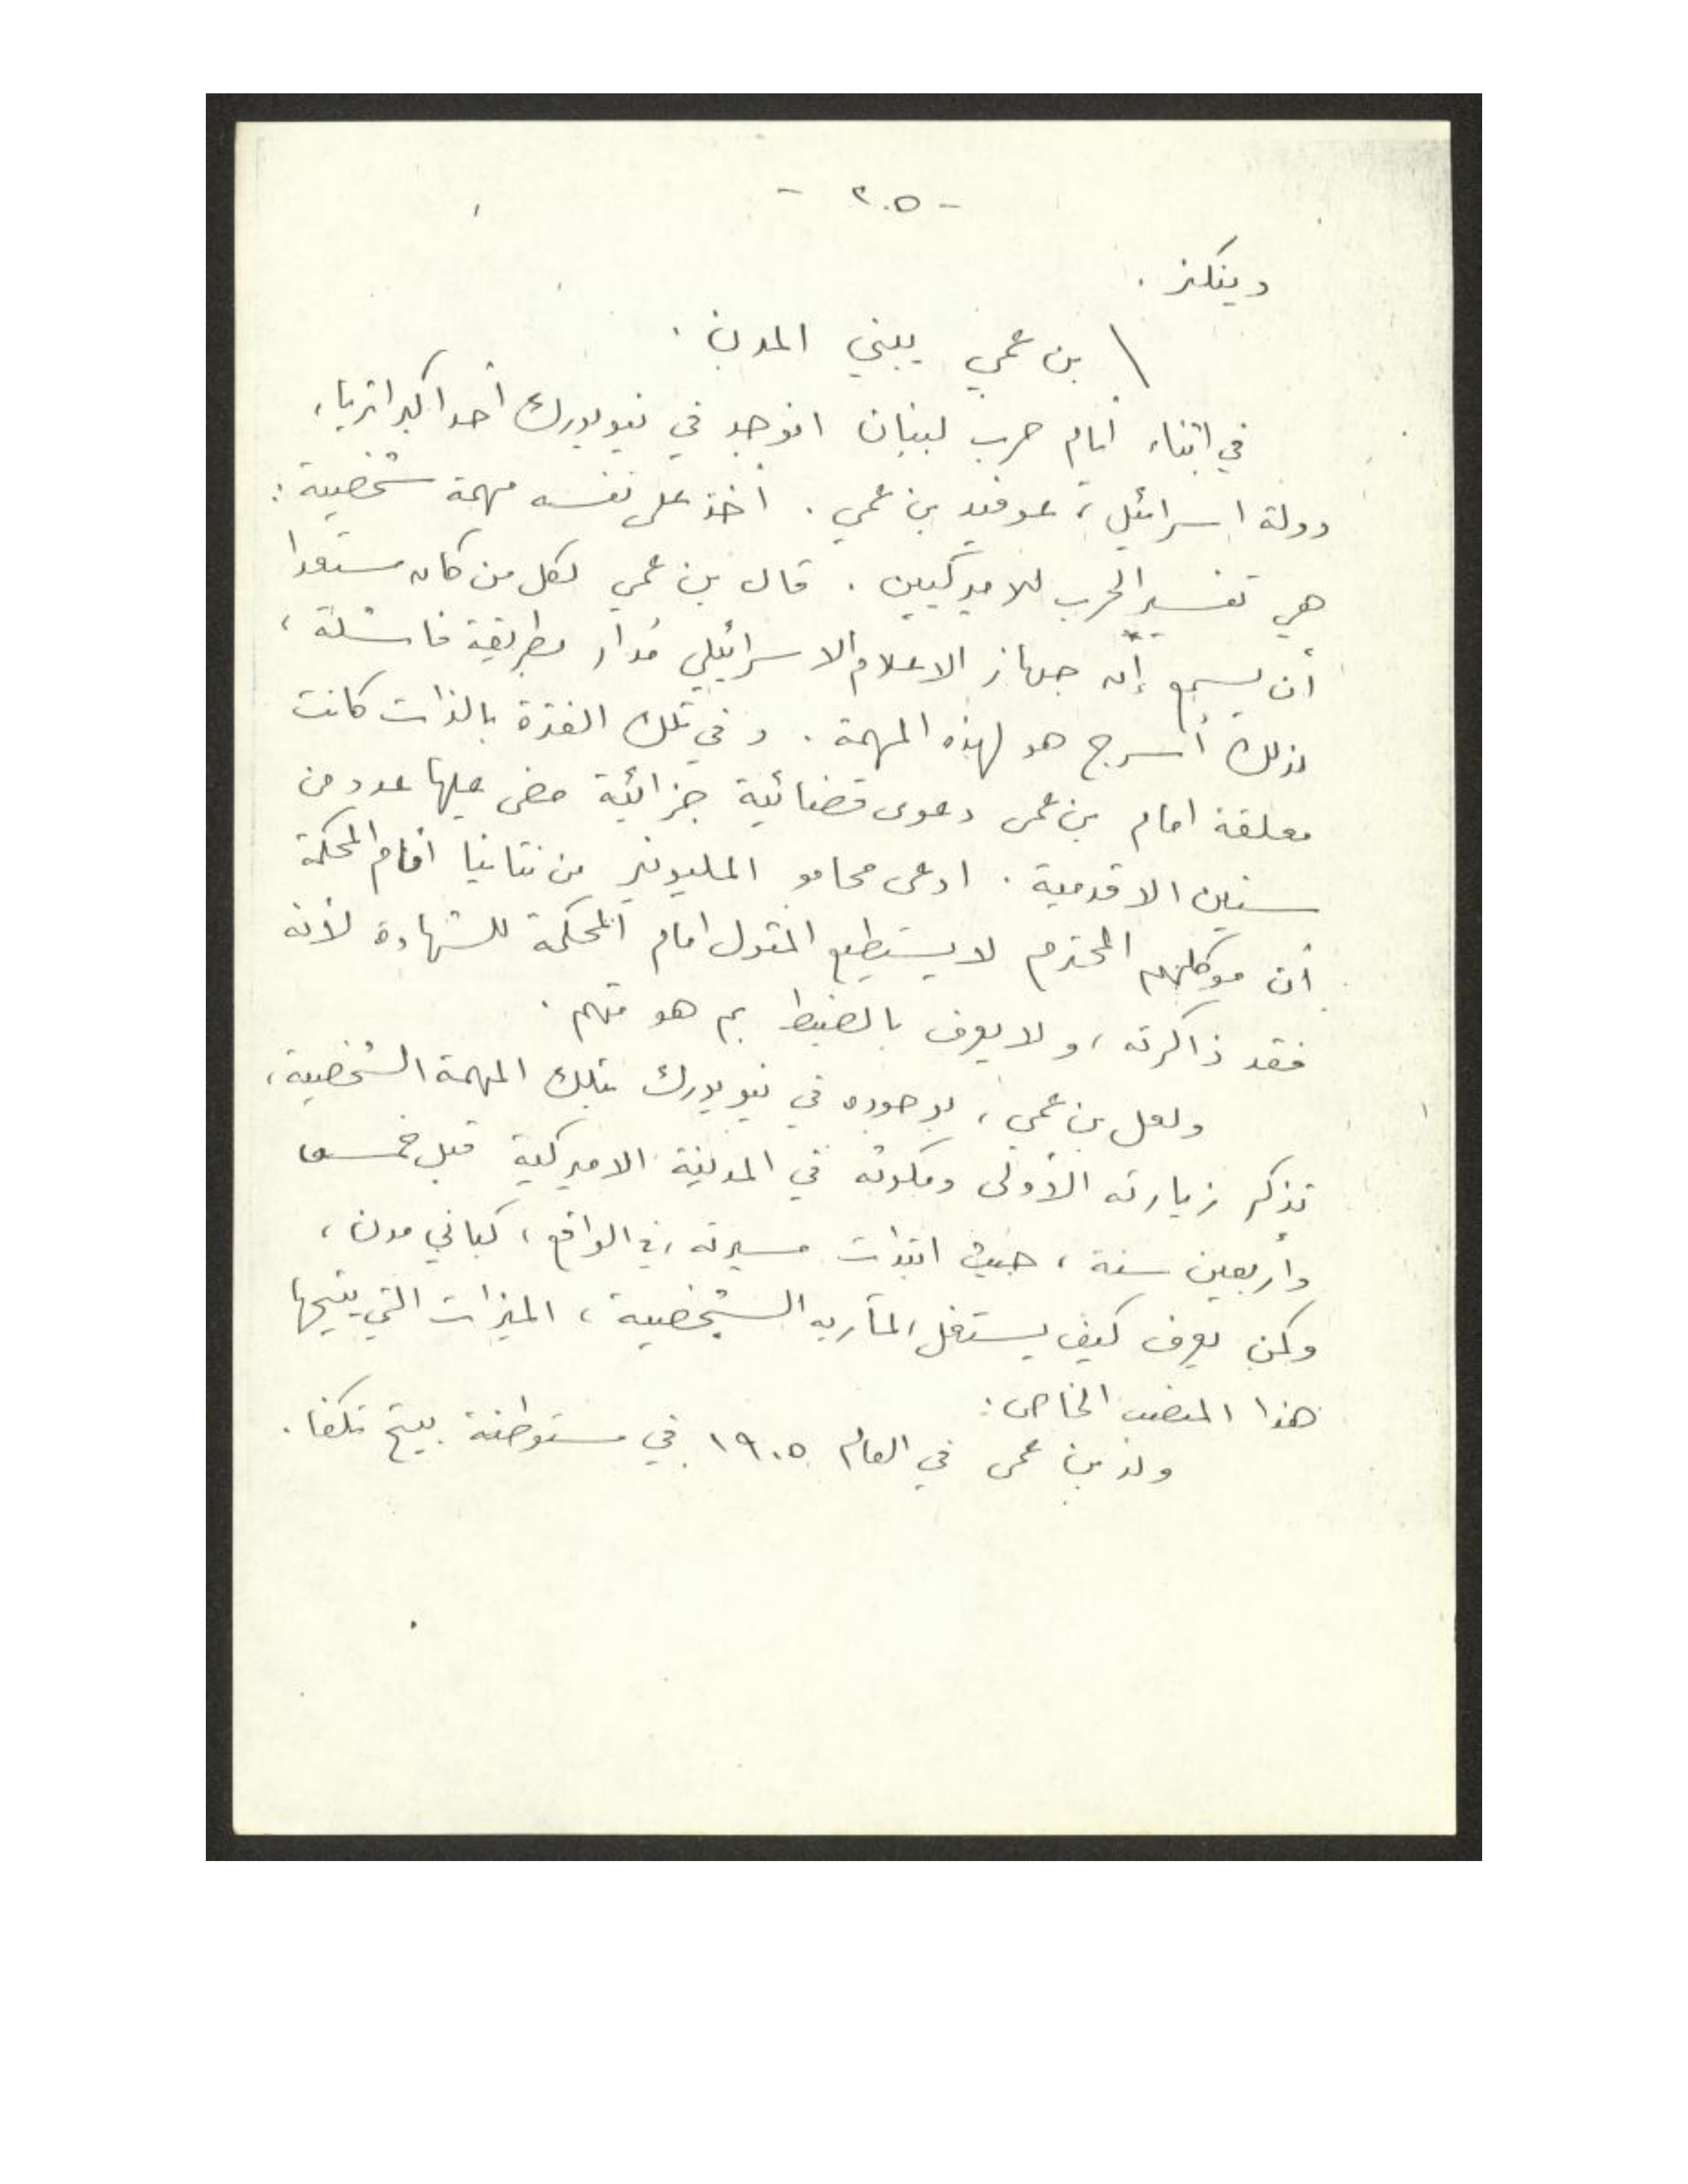 - ٢٠٥ -
دينكنز .
\ بن عمي يبني المدن .
في اثناء أيام حرب لبنان انوجد في نيويورك أحد اكبر اثرياء
دولة اسرائيل ، عوفيد بن عمي . أخذ على نفسه مهمة شخصية :
هي تفسير الحرب للاميركيين . قال بن عمي لكل من كان مستعدا
أن يسمع إن جهاز الاعلام الاسرائيلي مُدار بطريقة فاشلة ،
لذلك أُسرج هو لهذه المهمة . وفي تلك الفترة بالذات كانت
معلقة امام بن عمي دعوى قضائية جزائية مضى عليها عدد من
سنين الاقدمية . ادعى محامو المليونير من نتانيا أمام المحكمة
أن موكلهم المحترم لا يستطيع المثول امام المحكمة للشهادة لأنه
فقد ذاكرته ، ولا يعرف بالضبط بم هو متهم .
ولعل بن عمي ، بوجوده في نيويورك بتلك المهمة الشخصية ،
تذكر زيارته الأولى ومكوثه في المدينة الاميركية قبل خمس
وأربعين سنة ، حيث ابتدأت مسيرته ، في الواقع ، كباني مدن ،
وكمن يعرف كيف يستغل لمآربه الشخصية ، الميزات التي يتيحها
هذا المنصب الخاص :
ولد بن عمي في العام ١٩٠٥ في مستوطنة بيتح تكفا .